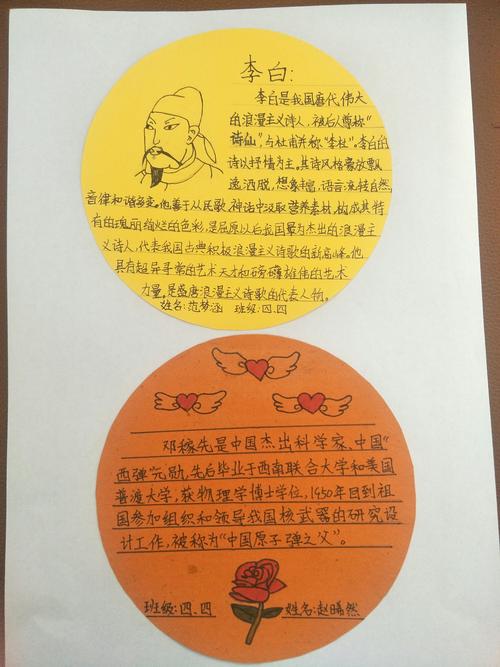 李白:
李白是我国唐代伟大
的浪漫主义诗人,被后人尊称"
诗仙",与杜甫并称"李杜",李白的
诗以抒情为主。其诗风格豪放飘
逸洒脱,想象丰富,语言流转自然,
音律和谐多变。他善于从民歌,神话中汲取营养素材,构成其特
有的瑰丽绚烂的色彩,是屈原以后我国最为杰出的浪漫主
义诗人,代表我国古典积极浪漫主义诗歌的新高峰。他
具有超异寻常的艺术天才和磅礴雄伟的艺术
力量,是盛唐浪漫主义诗歌的代表人物。
姓名:范梦涵 班级:四.四
邓稼先是中国杰出科学家,中国"
两弹"元勋,先后毕业于西南联合大学和美国
普渡大学,获物理学博士学位,1950年回到祖
国参加组织和领导我国核武器的研究设
计工作,被称为"中国原子弹之父"。
班级:四.四 姓名:赵曦然